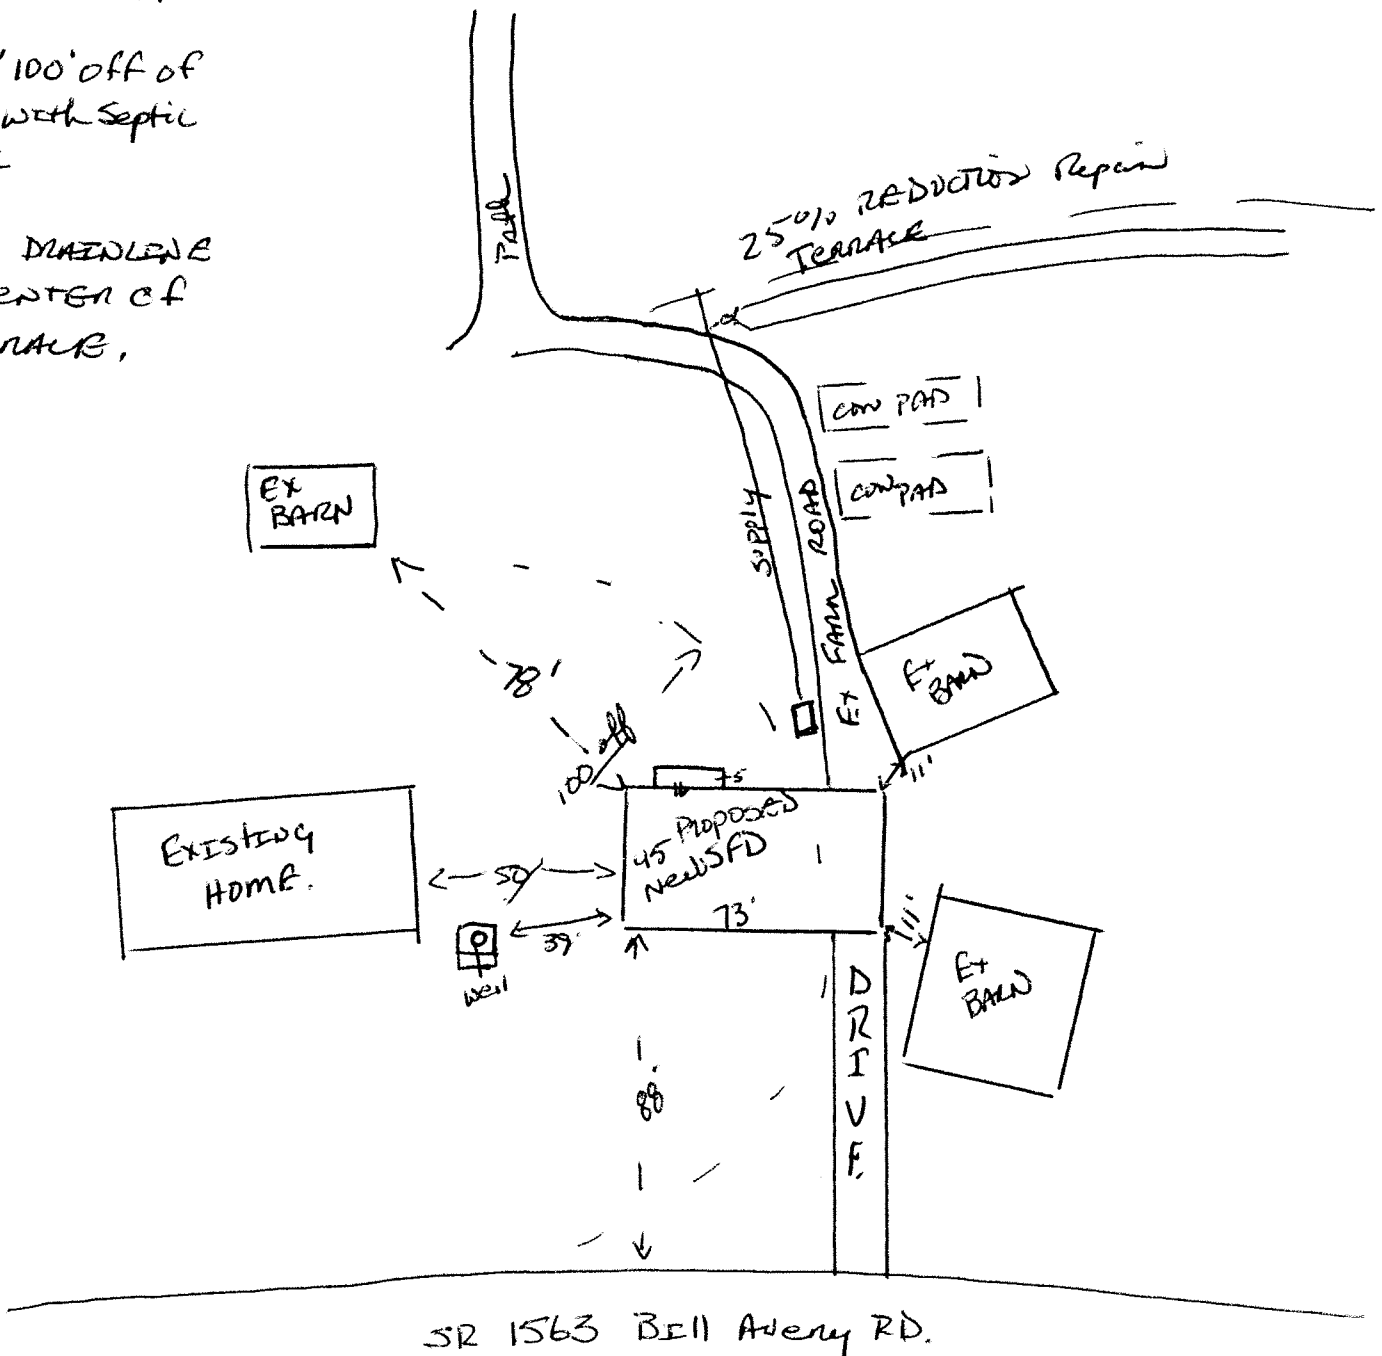 100' off of
with Septic
DRAINLINE
CENTER of
Path
25% REDUCTION Repair
TERRACE
CON PAD
CON PAD
EX
BARN
SUPPLY
EX FARM ROAD
EX
BARN
78'
100' off
5
11'
EXISTING
HOME.
50'
45 PROPOSED
New SFD
73'
39'
Well
11'
EX
BARN
88'
DRIVE
SR 1563 Bill Avery RD.